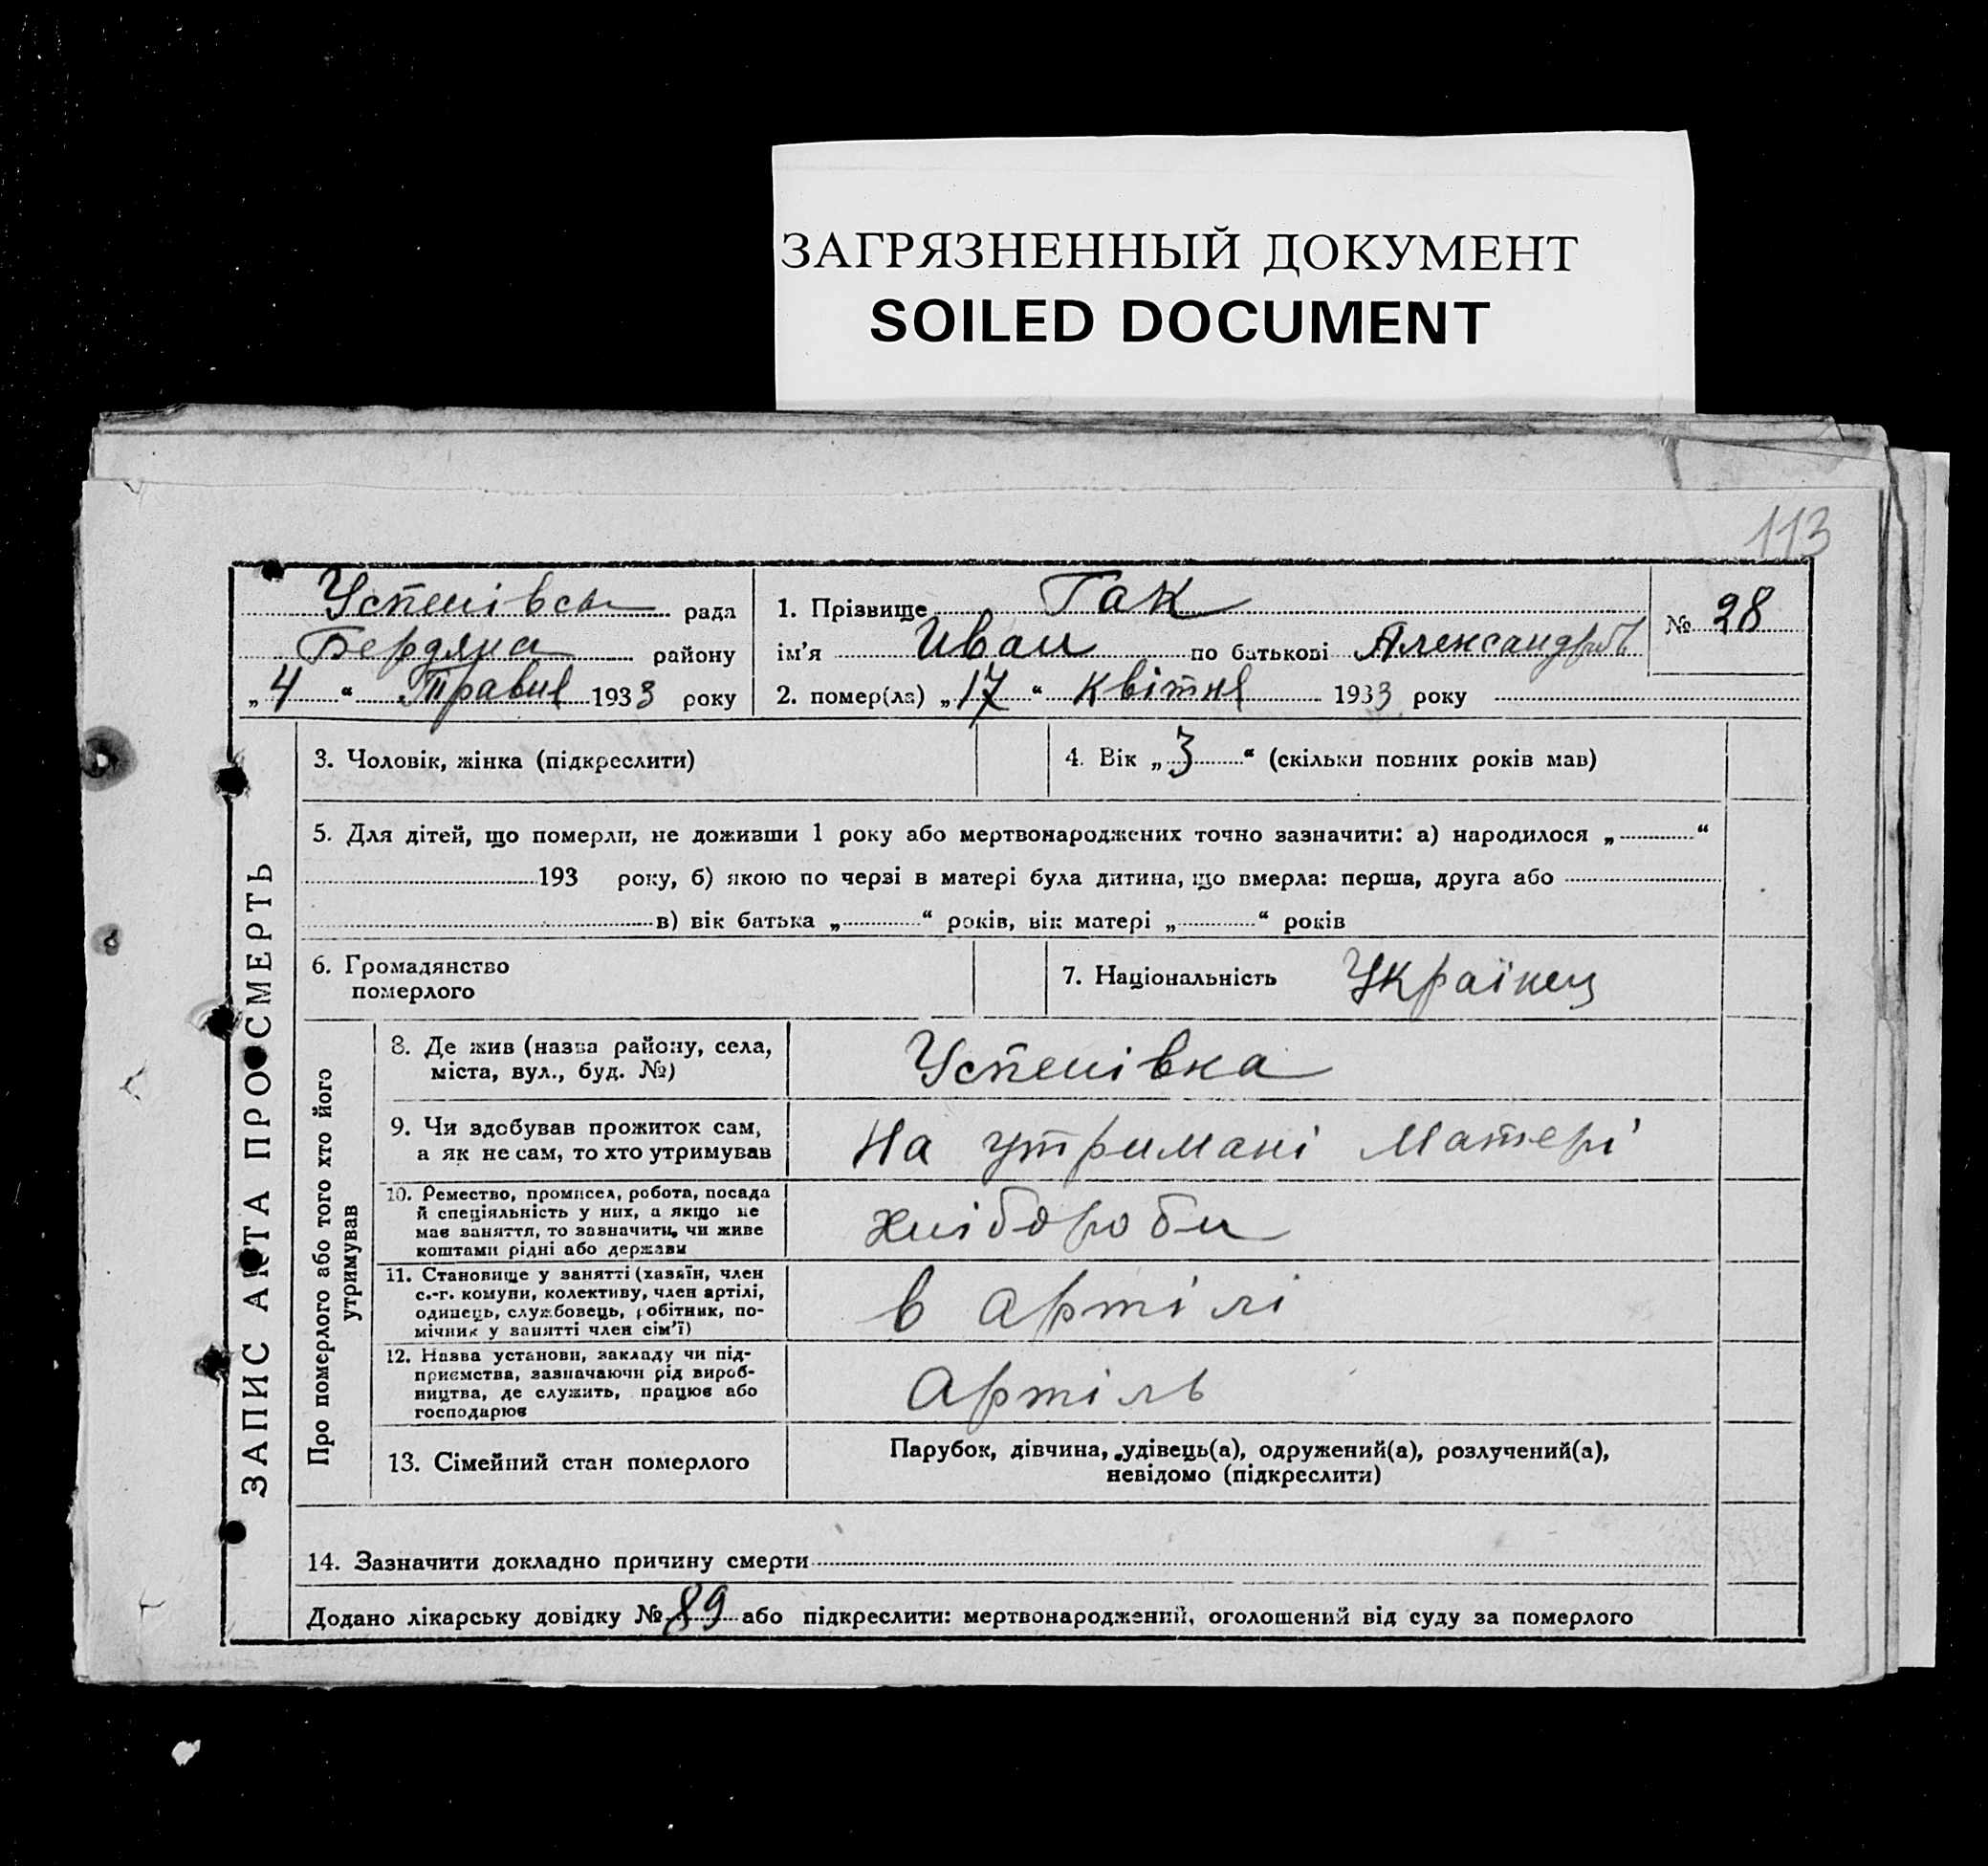 ЗАГРЯЗНЕННЫЙ ДОКУМЕНТ
SOILED DOCUMENT
113
Успенівська рада
Бердянс району
„ 4 “ Травня 1933 року
1. Прізвище Гак
ім'я Иван по батькові Александров
2. помер(ла) „ 17 “ Квітня 1933 року
№ 28
ЗАПИС АКТА ПРО СМЕРТЬ
3. Чоловік, жінка (підкреслити)
4. Вік „ 3 “ (скільки повних років мав)
5. Для дітей, що померли, не доживши 1 року або мертвонароджених точно зазначити: а) народилося „ “
193 року, б) якою по черзі в матері була дитина, що вмерла: перша, друга або
в) вік батька „ “ років, вік матері „ “ років
6. Громадянство
померлого
7. Національність Українец
Про померлого або того хто його
утримував
8. Де жив (назва району, села,
міста, вул., буд. №)
Успенівка
9. Чи здобував прожиток сам,
а як не сам, то хто утримував
На утримані Матері
10. Ремество, промисел, робота, посада
й спеціяльність у них, а якщо не
має заняття, то зазначити, чи живе
коштами рідні або держави
хлібороби
11. Становище у занятті (хазяїн, член
с.-г. комуни, колективу, член артілі,
одинець, службовець, робітник, по-
мічник у занятті член сім'ї)
в артілі
12. Назва установи, закладу чи під-
приємства, зазначаючи рід вироб-
ництва, де служить, працює або
господарює
Артіль
13. Сімейний стан померлого
Парубок, дівчина, удівець(а), одружений(а), розлучений(а),
невідомо (підкреслити)
14. Зазначити докладно причину смерти
Додано лікарську довідку № 89 або підкреслити: мертвонароджений, оголошений від суду за померлого